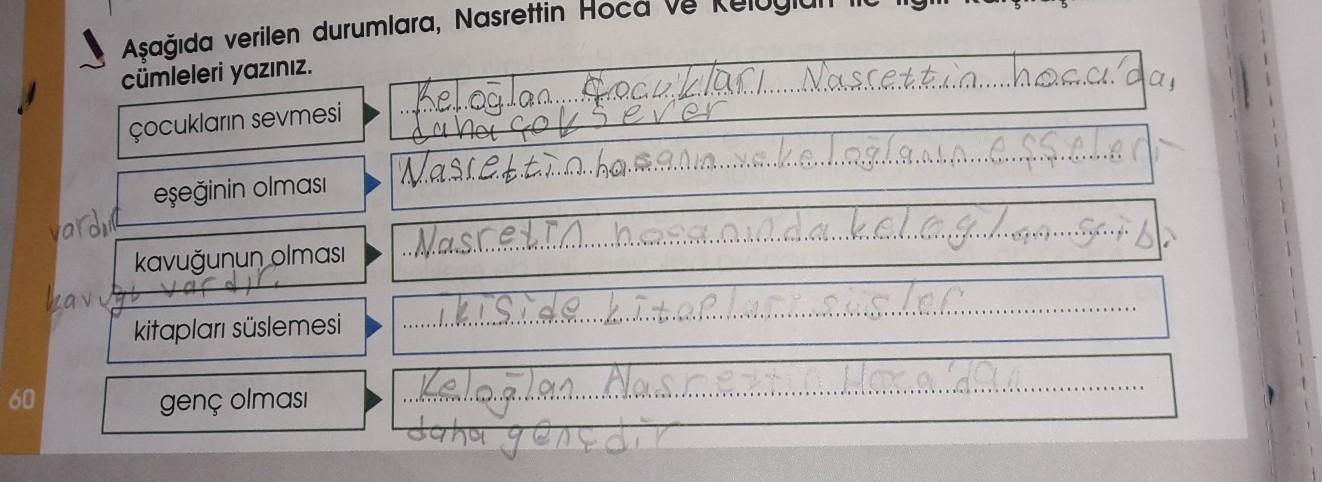 Aşağıda verilen durumlara, Nasrettin Hoca ve Keloğlan ile ilgili
cümleleri yazınız.
çocukların sevmesi
Keloğlan çocukları Nasrettin hoca'da,
daha çok sever
eşeğinin olması
Nasrettin hocanın ve keloğlanın eşşeleri
vardır
kavuğunun olması
Nasretin hocanında keloğlan gibi
kavuğu vardır.
kitapları süslemesi
ikiside kitapları süsler
genç olması
Keloğlan Nasrettin Hoca'dan
daha gençdir
60